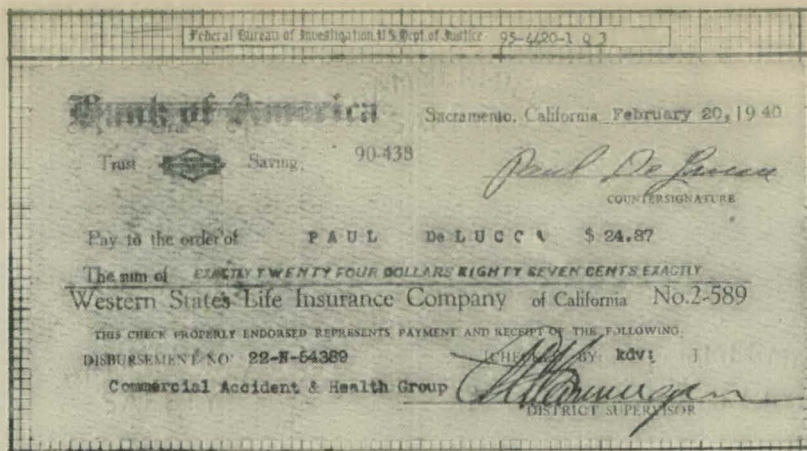 Federal Bureau of Investigation, U.S. Dept. of Justice 95-4420-1 Q 3
Bank of America
Sacramento, California February 20, 1940
Trust Saving, 90-438
Paul De
COUNTERSIGNATURE
Pay to the order of PAUL De LUCCA $ 24.87
The sum of EXACTLY TWENTY FOUR DOLLARS EIGHTY SEVEN CENTS EXACTLY
Western States Life Insurance Company of California No.2-589
THIS CHECK PROPERLY ENDORSED REPRESENTS PAYMENT AND RECEIPT OF THE FOLLOWING
DISBURSEMENT NO: 22-N-54389 [CHECKED BY: kdv: ]
Commercial Accident & Health Group
DISTRICT SUPERVISOR